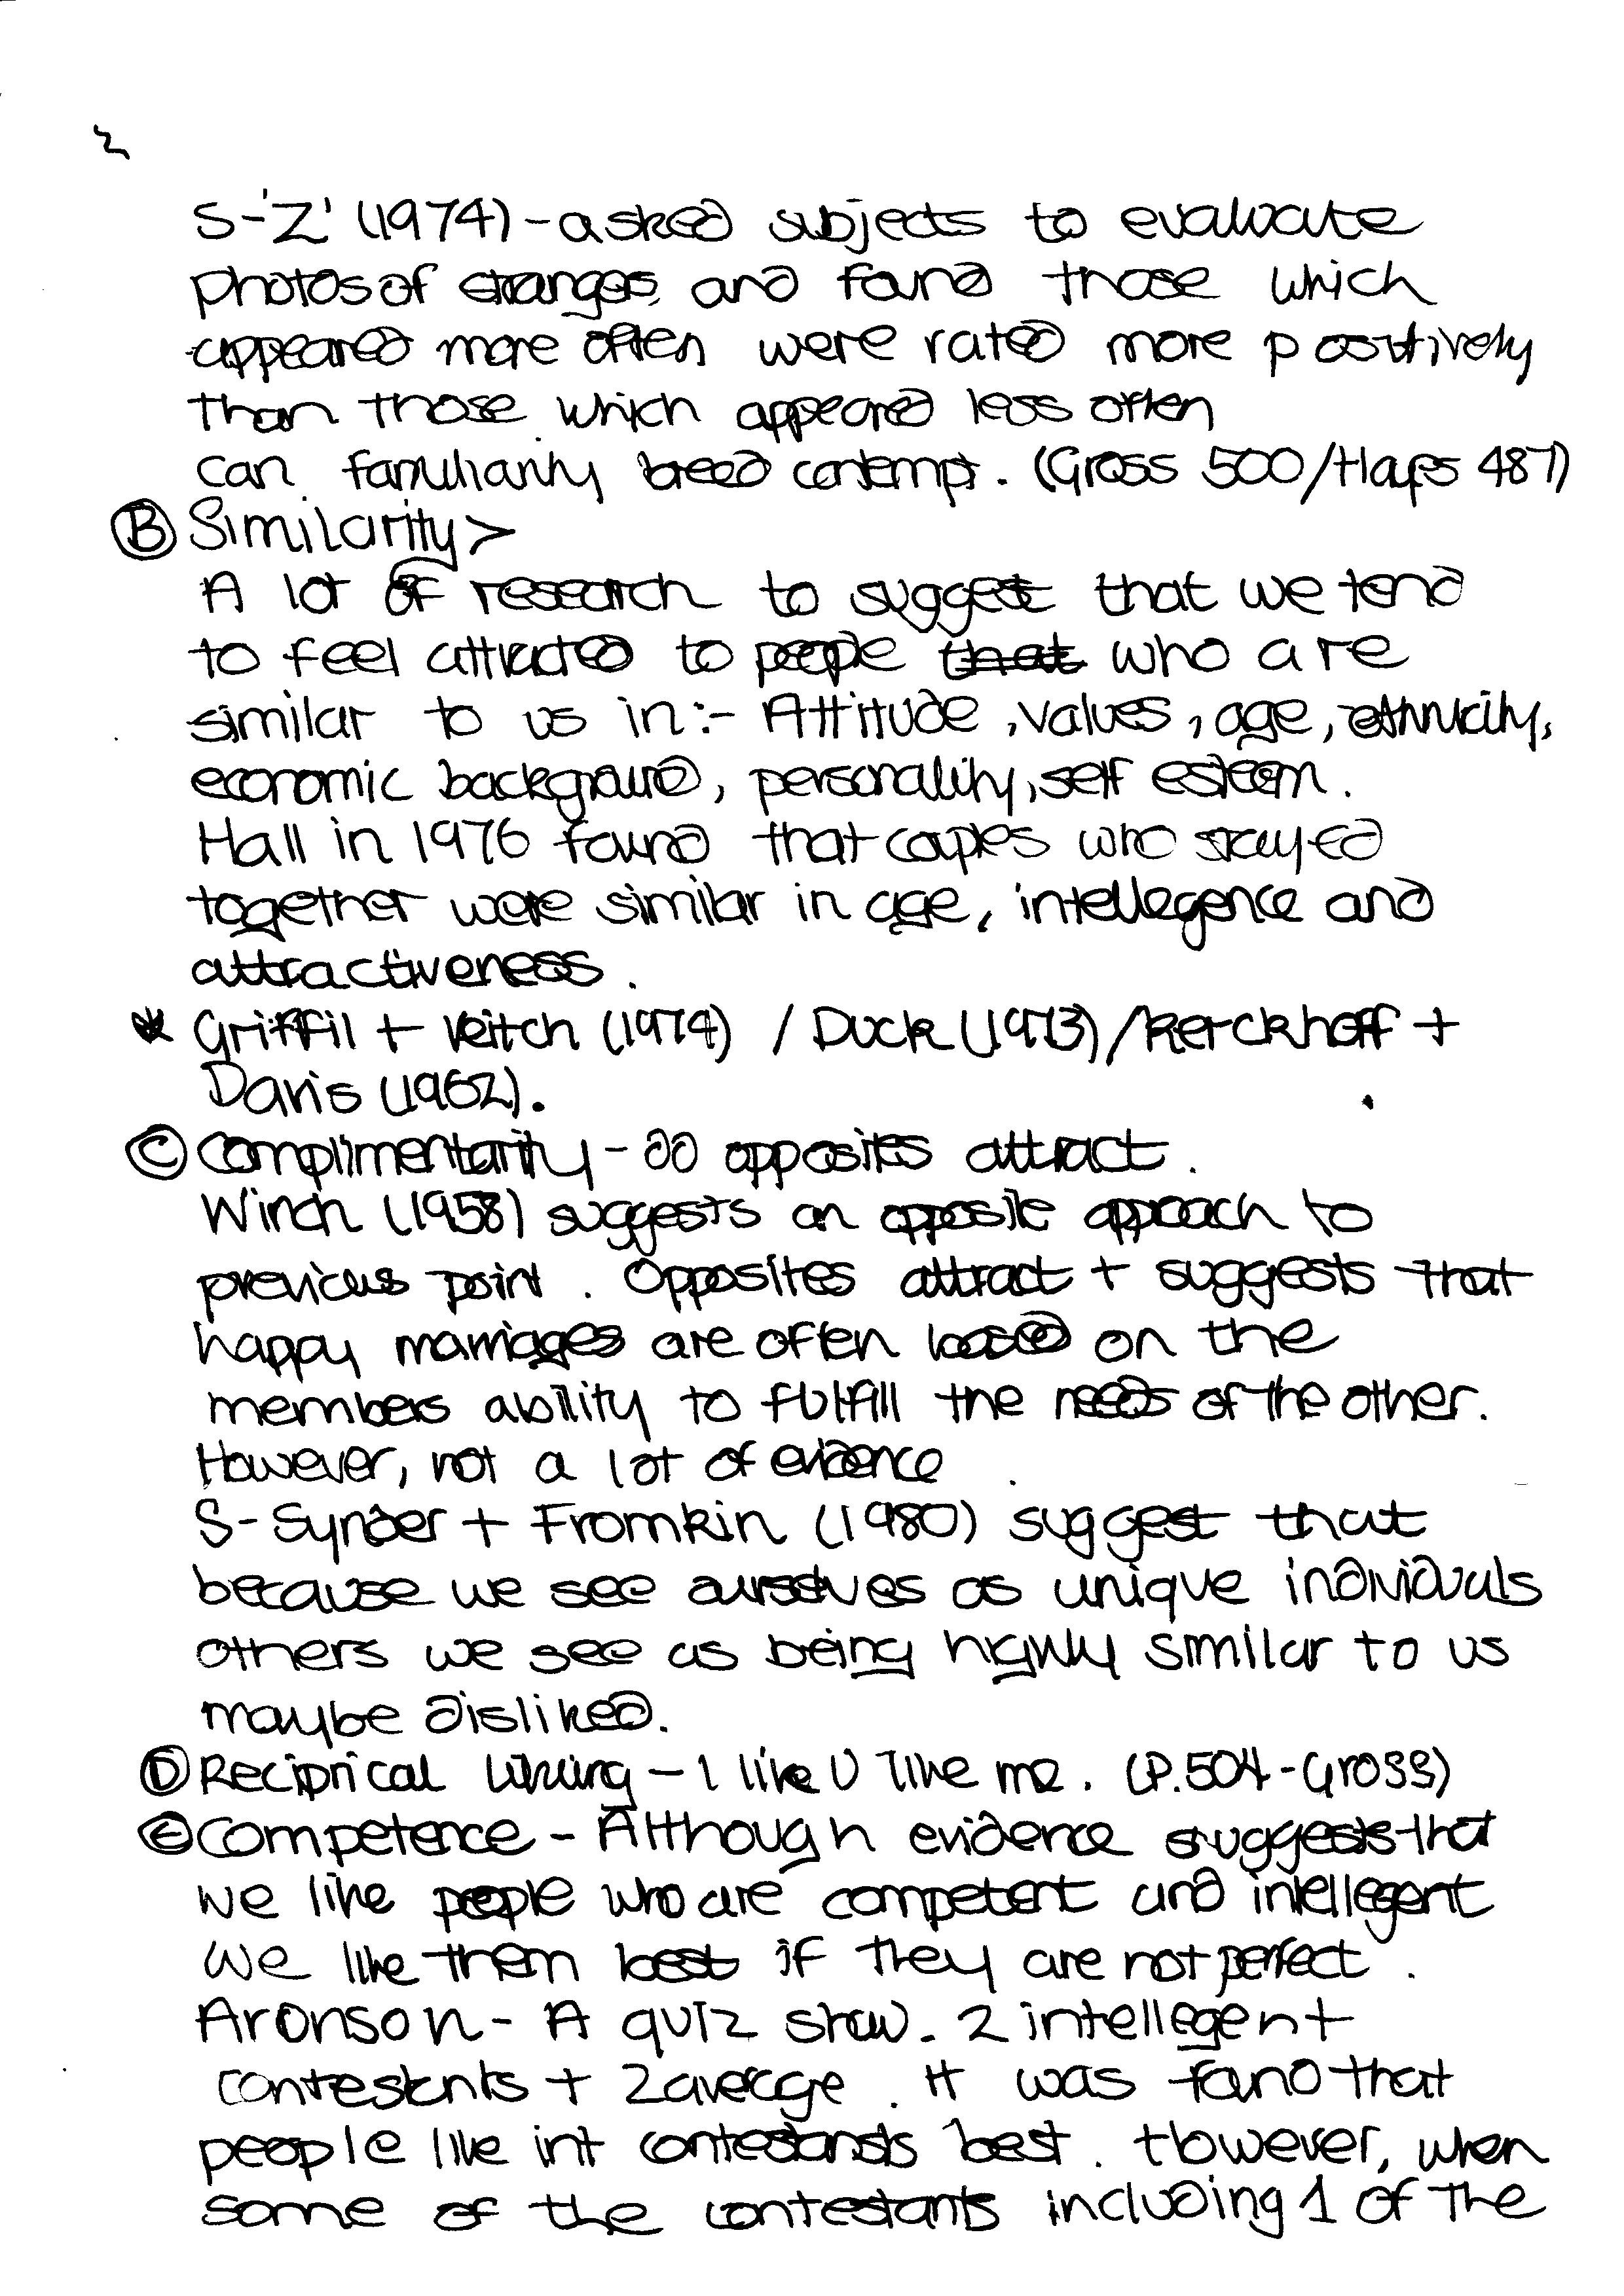 2
S-'Z' (1974) - asked subjects to evaluate
photos of strangers, and found those which
appeared more often were rated more positively
than those which appeared less often
can familiarity breed contempt. (Gross 500/Hayes 487)
Ⓑ Similarity >
A lot of research to suggest that we tend
to feel attracted to people that who are
similar to us in:- Attitude, values, age, ethnicity,
economic background, personality, self esteem.
Hall in 1976 found that couples who stayed
together were similar in age, intellegence and
attractiveness.
* Griffil + Veitch (1974) / Duck (1973) / Kerckhoff +
Davis (1962).
Ⓒ Complimentarity - do opposites attract.
Winch (1958) suggests an opposite approach to
previous point. Opposites attract + suggests that
happy marriages are often based on the
members ability to fulfill the needs of the other.
However, not a lot of evidence
S- Synder + Fromkin (1980) suggest that
because we see ourselves as unique individuals
others we see as being highly similar to us
maybe disliked.
Ⓓ Reciprical Liking - I like U like me. (P.504 - Gross)
Ⓔ Competence - Although evidence suggests that
we like people who are competent and intellegent
we like them best if they are not perfect.
Aronson - A quiz show. 2 intellegent
contestants + 2 average. It was found that
people like int contestants best. However, when
some of the contestants including 1 of the